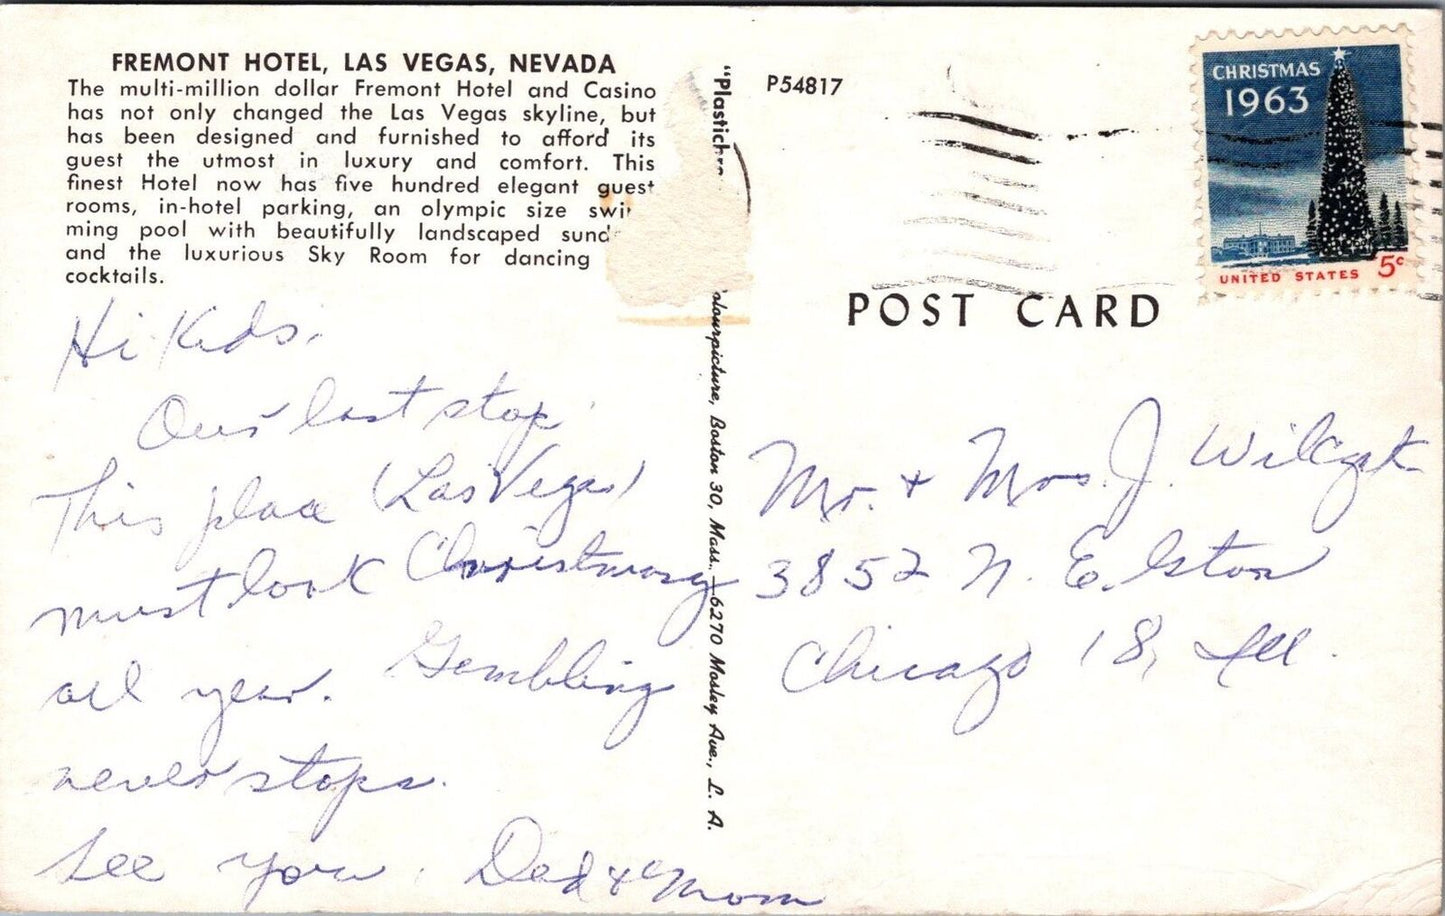 FREMONT HOTEL, LAS VEGAS, NEVADA
The multi-million dollar Fremont Hotel and Casino
has not only changed the Las Vegas skyline, but
has been designed and furnished to afford its
guest the utmost in luxury and comfort. This
finest Hotel now has five hundred elegant guest
rooms, in-hotel parking, an olympic size swi
ming pool with beautifully landscaped sund
and the luxurious Sky Room for dancing
cocktails.
Hi Kids.
Our last stop.
This place (Las Vegas)
must look Christmasy
all year. Gembling
never stops.
See you. Dad & Mom
"Plastichr
olourpicture, Boston 30, Mass. 6270 Mosley Ave., L. A.
P54817
CHRISTMAS
1963
UNITED STATES 5c
POST CARD
Mr. + Mrs. J.
3852 N. Elston
Chicago 18, Ill.